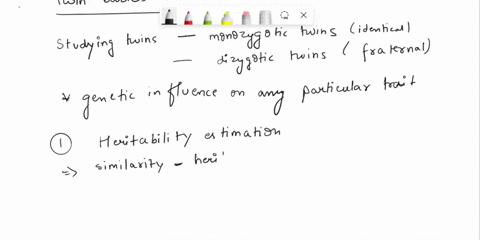 Studying twins — monozygotic twins (identical)
— dizygotic twins (fraternal)
* genetic influence on any particular trait
① Heritability estimation
⇒ similarity - heri